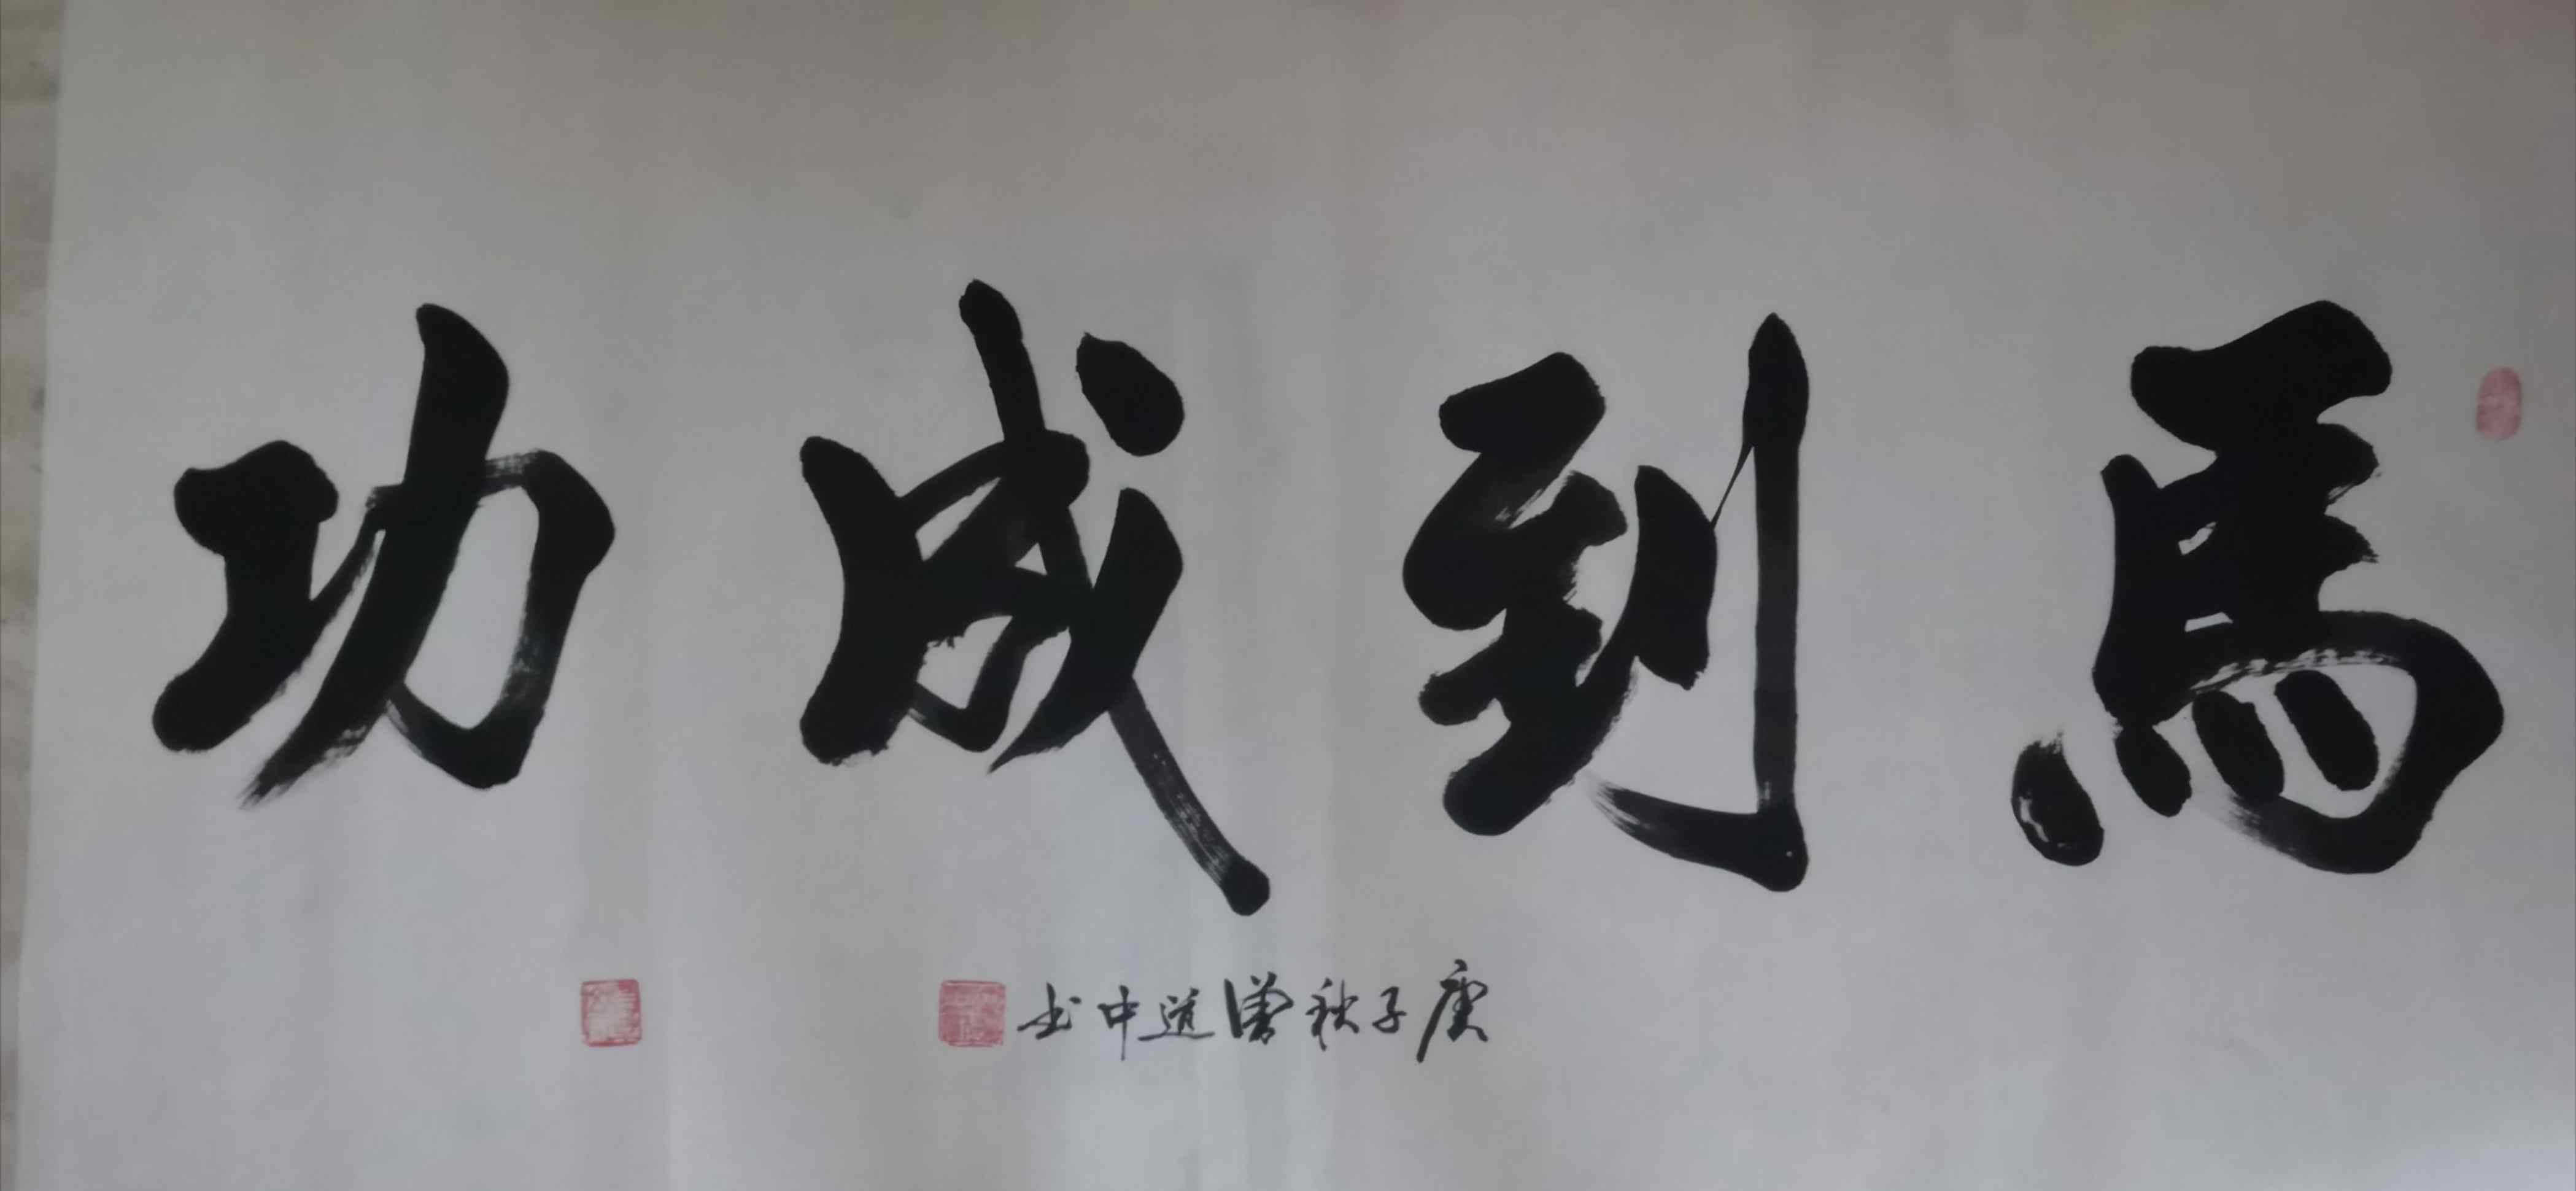 馬到成功
庚子秋曾道中书